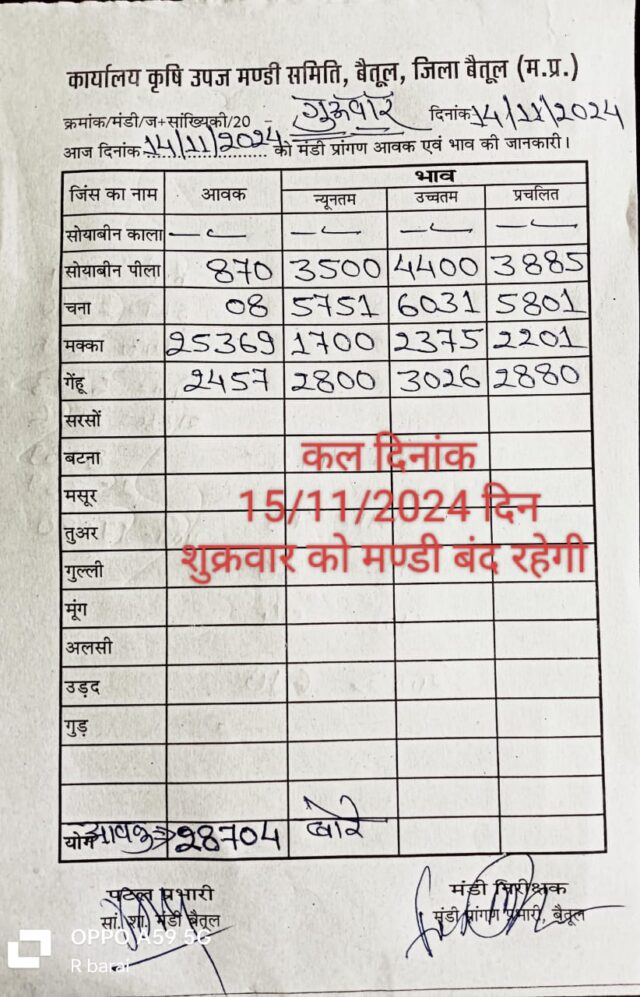 कार्यालय कृषि उपज मण्डी समिति, बैतूल, जिला बैतूल (म.प्र.)
क्रमांक/मंडी/ज+सांख्यिकी/20 - गुरुवार दिनांक 14/11/2024
आज दिनांक 14/11/2024 को मंडी प्रांगण आवक एवं भाव की जानकारी।
जिंस का नाम आवक भाव
न्यूनतम उच्चतम प्रचलित
सोयाबीन काला
सोयाबीन पीला 870 3500 4400 3885
चना 08 5751 6031 5801
मक्का 25369 1700 2375 2201
गेंहू 2457 2800 3026 2880
सरसों
बटना
मसूर
तुअर
गुल्ली
मूंग
अलसी
उड़द
गुड़
कल दिनांक
15/11/2024 दिन
शुक्रवार को मण्डी बंद रहेगी
योग आवक 28704 बोरे
प्रभारी
सां. शा. मंडी बैतूल
मंडी निरीक्षक
मंडी प्रांगण प्रभारी, बैतूल
OPPO A59 5G
R barai